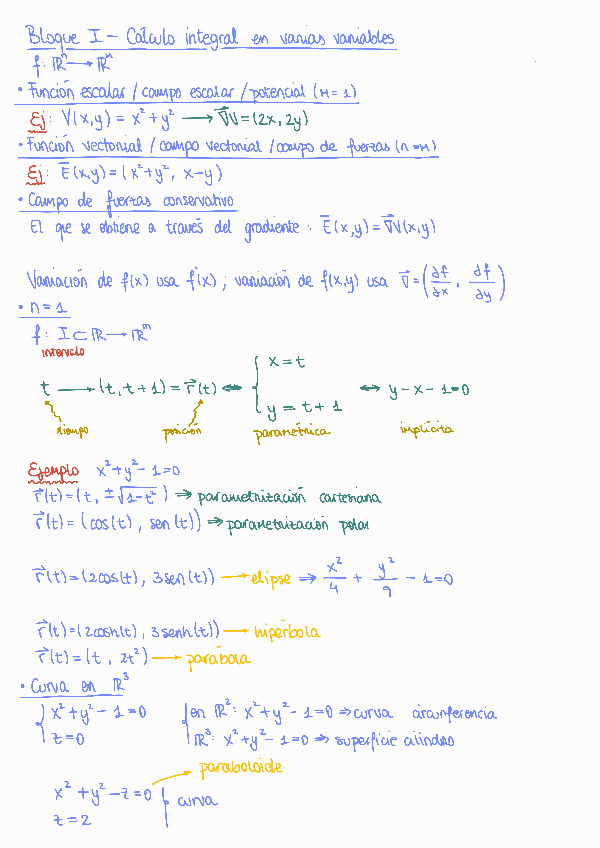 Bloque I - Cálculo integral en varias variables
f: ℝⁿ → ℝᵐ
• Función escalar / campo escalar / potencial (m = 1)
Ej: V(x,y) = x² + y² → ∇⃗V = (2x, 2y)
• Función vectorial / campo vectorial / campo de fuerzas (n = m)
Ej: E⃗(x,y) = (x² + y², x - y)
• Campo de fuerzas conservativo
El que se obtiene a través del gradiente: E⃗(x,y) = ∇⃗V(x,y)
Variación de f(x) usa f'(x); variación de f(x,y) usa ∇⃗ = (∂f/∂x, ∂f/∂y)
• n = 1
f: I ⊂ ℝ → ℝᵐ
intervalo
t → (t, t + 1) = r⃗(t) ⇔ { x = t
y = t + 1
⇔ y - x - 1 = 0
tiempo posición paramétrica implícita
Ejemplo x² + y² - 1 = 0
r⃗(t) = (t, ±√(1 - t²)) ⇒ parametrización cartesiana
r⃗(t) = (cos(t), sen(t)) ⇒ parametrización polar
r⃗(t) = (2cos(t), 3sen(t)) → elipse ⇒ x²/4 + y²/9 - 1 = 0
r⃗(t) = (2cosh(t), 3senh(t)) → hipérbola
r⃗(t) = (t, 2t²) → parábola
• Curva en ℝ³
{ x² + y² - 1 = 0
z = 0
{ en ℝ²: x² + y² - 1 = 0 ⇒ curva circunferencia
ℝ³: x² + y² - 1 = 0 ⇒ superficie cilindro
paraboloide
x² + y² - z = 0
z = 2
} curva